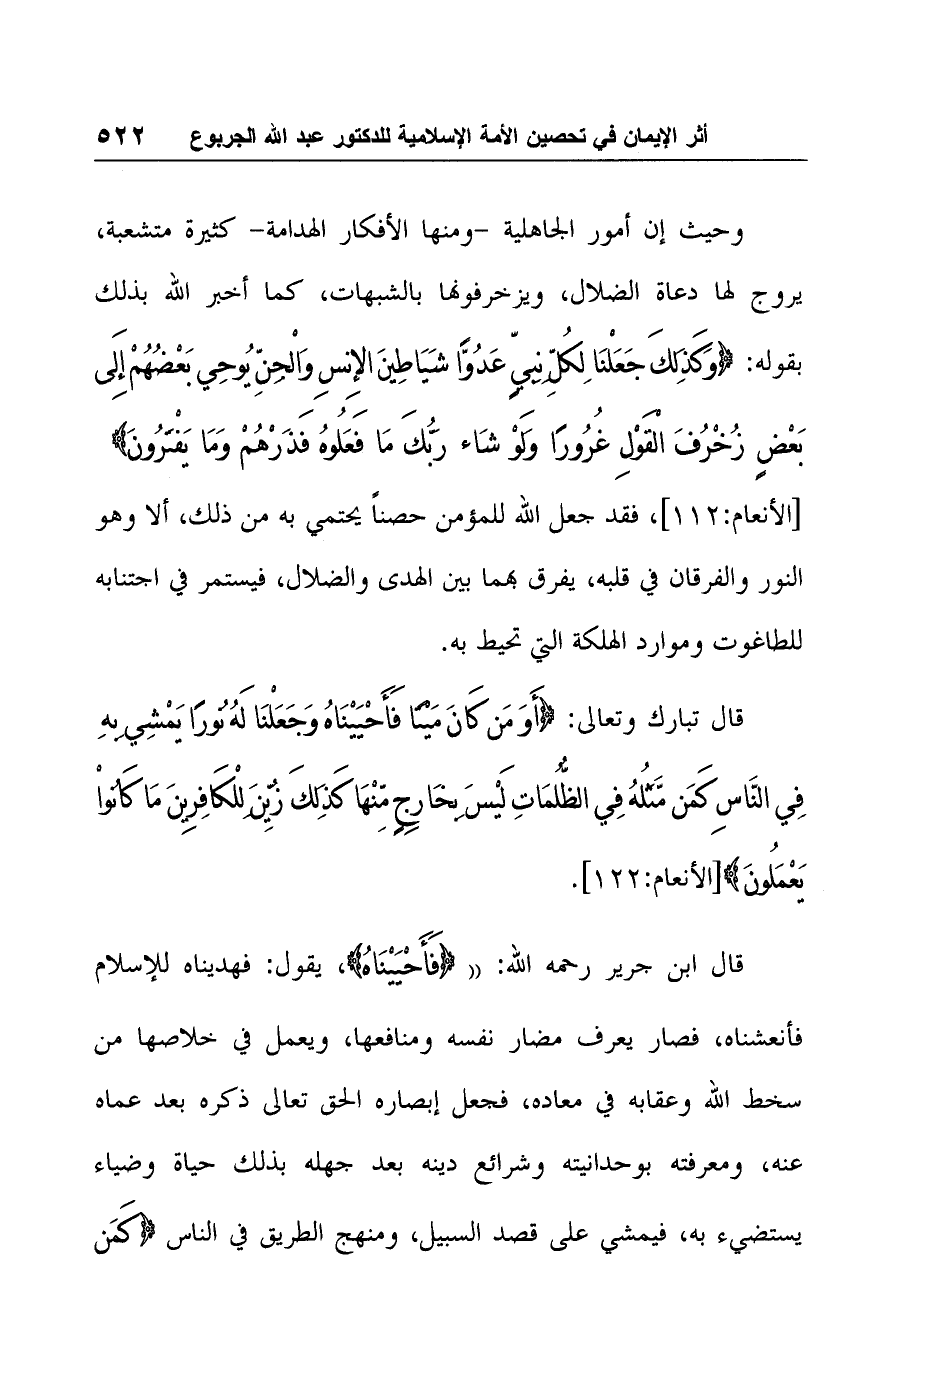 أثر الإيمان في تحصين الأمة الإسلامية للدكتور عبد الله الجربوع ٥٢٢
وحيث إن أمور الجاهلية -ومنها الأفكار الهدامة- كثيرة متشعبة،
يروج لها دعاة الضلال، ويزخرفونها بالشبهات، كما أخبر الله بذلك
بقوله: ﴿وَكَذَلِكَ جَعَلْنَا لِكُلِّ نِبِيٍّ عَدُوًّا شَيَاطِينَ الإِنسِ وَالْجِنِّ يُوحِي بَعْضُهُمْ إِلَى
بَعْضٍ زُخْرُفَ الْقَوْلِ غُرُورًا وَلَوْ شَاء رَبُّكَ مَا فَعَلُوهُ فَذَرْهُمْ وَمَا يَفْتَرُونَ﴾
[الأنعام:١١٢]، فقد جعل الله للمؤمن حصناً يحتمي به من ذلك، ألا وهو
النور والفرقان في قلبه، يفرق بهما بين الهدى والضلال، فيستمر في اجتنابه
للطاغوت وموارد الهلكة التي تحيط به.
قال تبارك وتعالى: ﴿أَوَ مَن كَانَ مَيْتًا فَأَحْيَيْنَاهُ وَجَعَلْنَا لَهُ نُورًا يَمْشِي بِهِ
فِي النَّاسِ كَمَن مَّثَلُهُ فِي الظُّلُمَاتِ لَيْسَ بِخَارِجٍ مِّنْهَا كَذَلِكَ زُيِّنَ لِلْكَافِرِينَ مَا كَانُواْ
يَعْمَلُونَ﴾[الأنعام:١٢٢].
قال ابن جرير رحمه الله: (( ﴿فَأَحْيَيْنَاهُ﴾، يقول: فهديناه للإسلام
فأنعشناه، فصار يعرف مضار نفسه ومنافعها، ويعمل في خلاصها من
سخط الله وعقابه في معاده، فجعل إبصاره الحق تعالى ذكره بعد عماه
عنه، ومعرفته بوحدانيته وشرائع دينه بعد جهله بذلك حياة وضياء
يستضيء به، فيمشي على قصد السبيل، ومنهج الطريق في الناس ﴿كَمَن